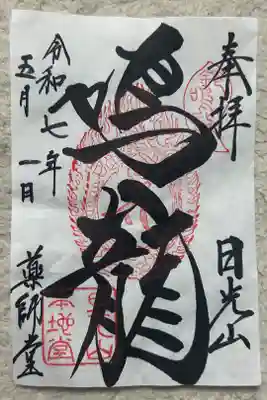 奉拝
日光山
鳴龍
本地堂
令和七年
五月一日
薬師堂